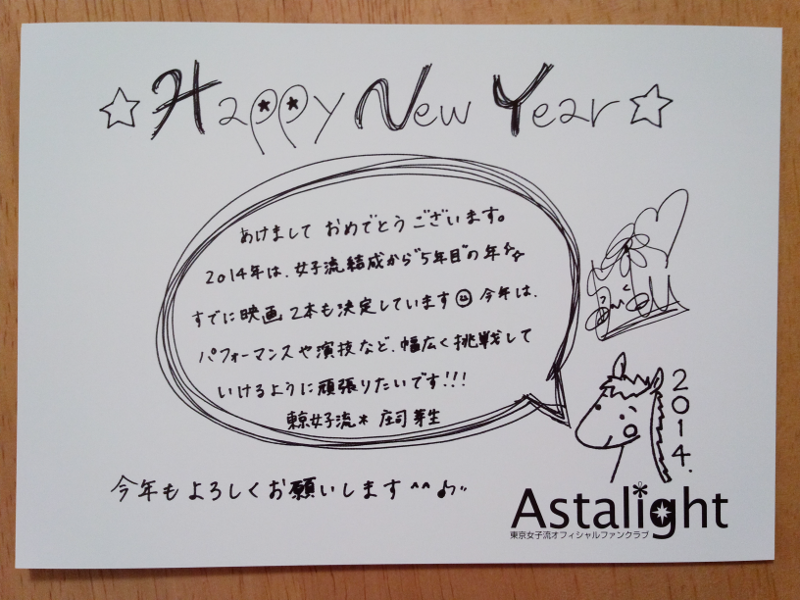 ☆Happy New Year☆
あけまして おめでとうございます。
2014年は、女子流結成から"5年目"の年
すでに映画2本も決定しています 今年は、
パフォーマンスや演技など、幅広く挑戦して
いけるように頑張りたいです!!!
東京女子流* 庄司芽生
2014.
今年もよろしくお願いします^^♪
Astalight*
東京女子流オフィシャルファンクラブ